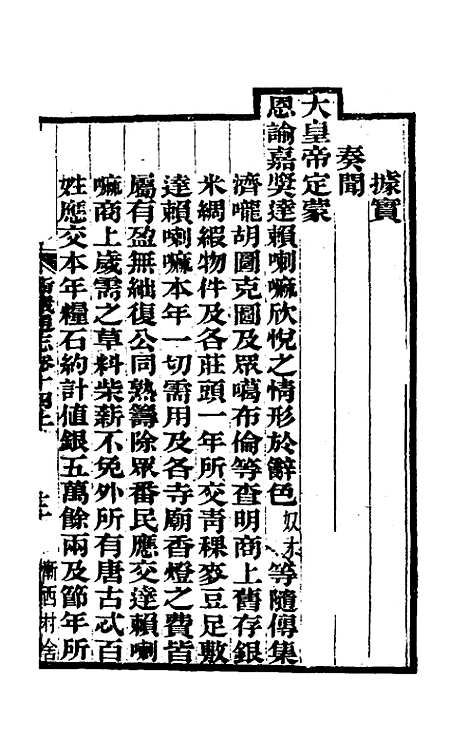 據實
奏聞
大皇帝定蒙
恩諭嘉獎達賴喇嘛欣悅之情形於辭色奴才等隨傳集
濟嚨胡圖克圖及眾噶布倫等查明商上舊存銀
米綢緞物件及各莊頭一年所交青稞麥豆足敷
達賴喇嘛本年一切需用及各寺廟香燈之費皆
屬有盈無絀復公同熟籌除眾番民應交達賴喇
嘛商上歲需之草料柴薪不免外所有唐古忒百
姓應交本年糧石約計值銀五萬餘兩及節年所
衛藏通志卷十四上
漸西村舍